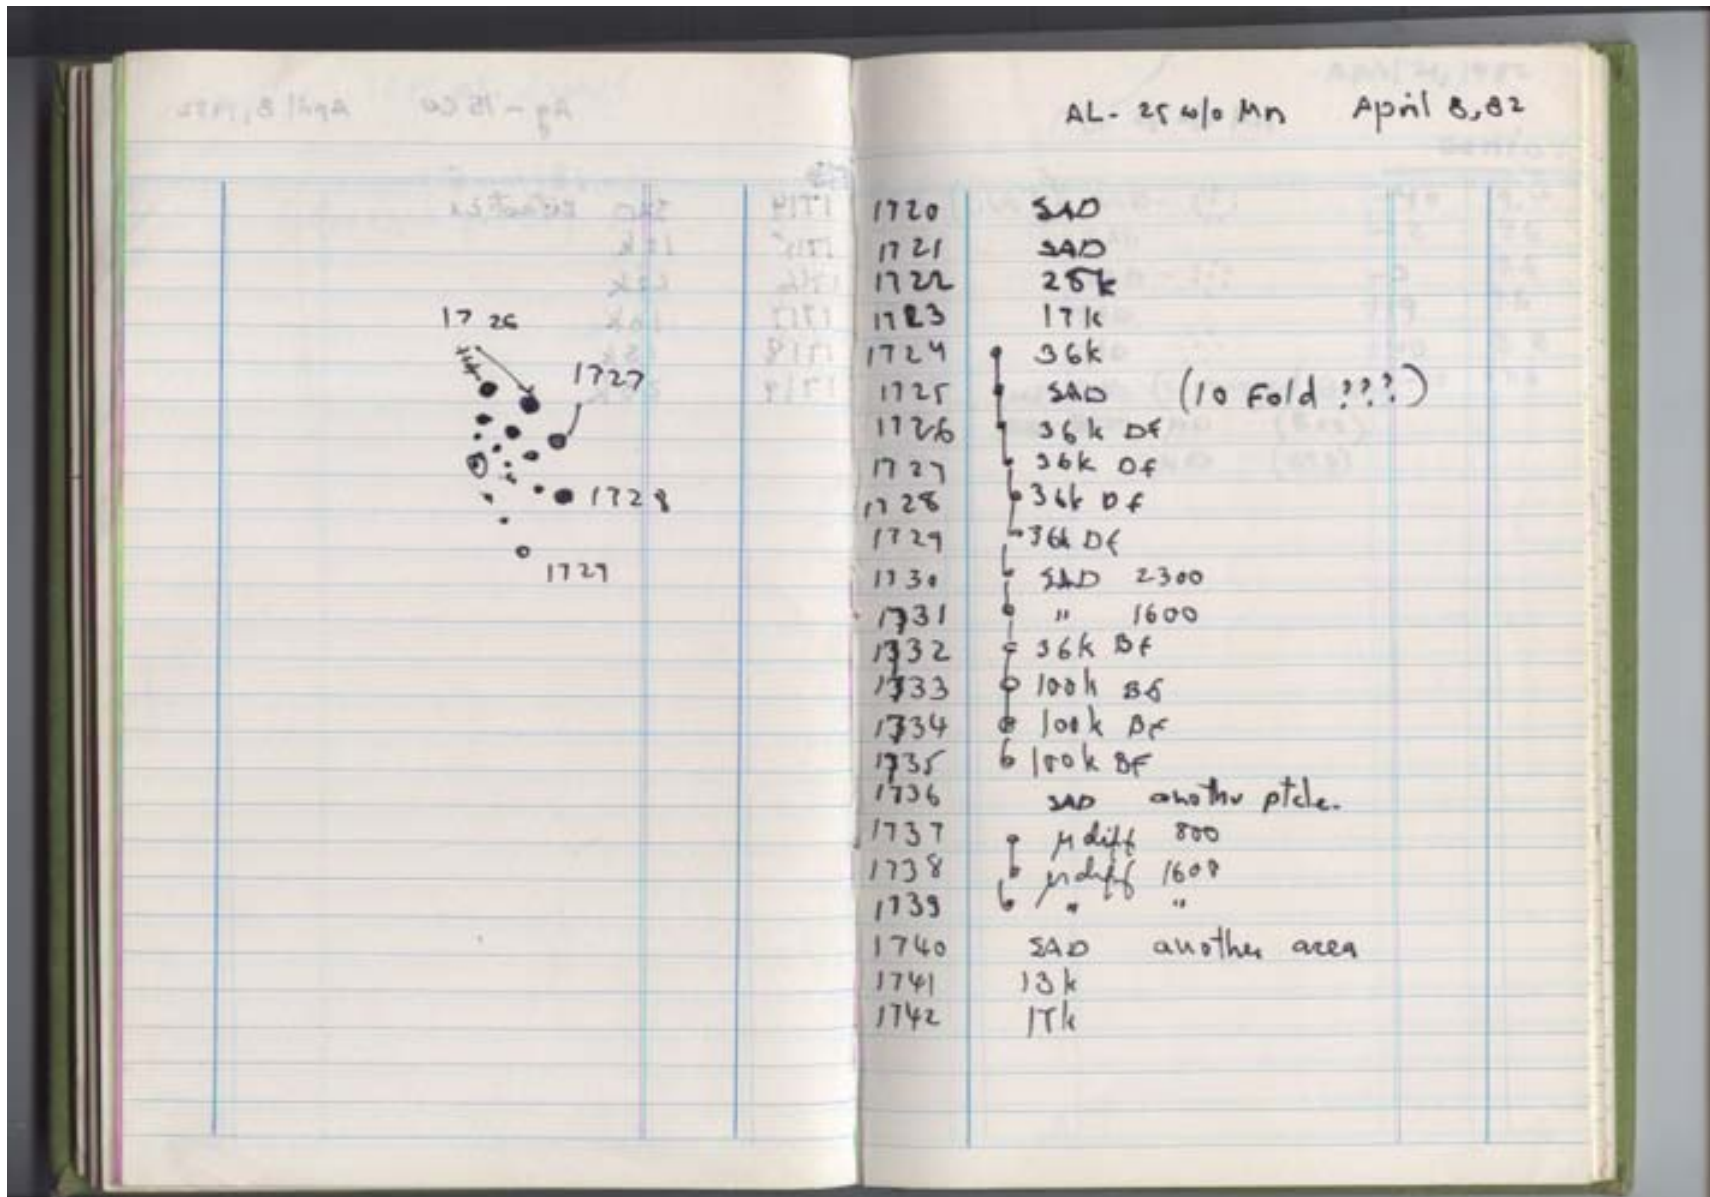 17 26
1727
1728
1729
AL- 25 w/o Mn April 8, 82
1720 SAD
1721 SAD
1722 25k
1723 17k
1724 36k
1725 SAD (10 Fold ???)
1726 36k Df
1727 36k Df
1728 36k Df
1729 36k Df
1730 SAD 2300
1731 " 1600
1732 36k Bf
1733 100k Bf
1734 100k Bf
1735 100k BF
1736 SAD another ptcle.
1737 μ diff 800
1738 μ diff 1600
1739 " "
1740 SAD another area
1741 13k
1742 17k